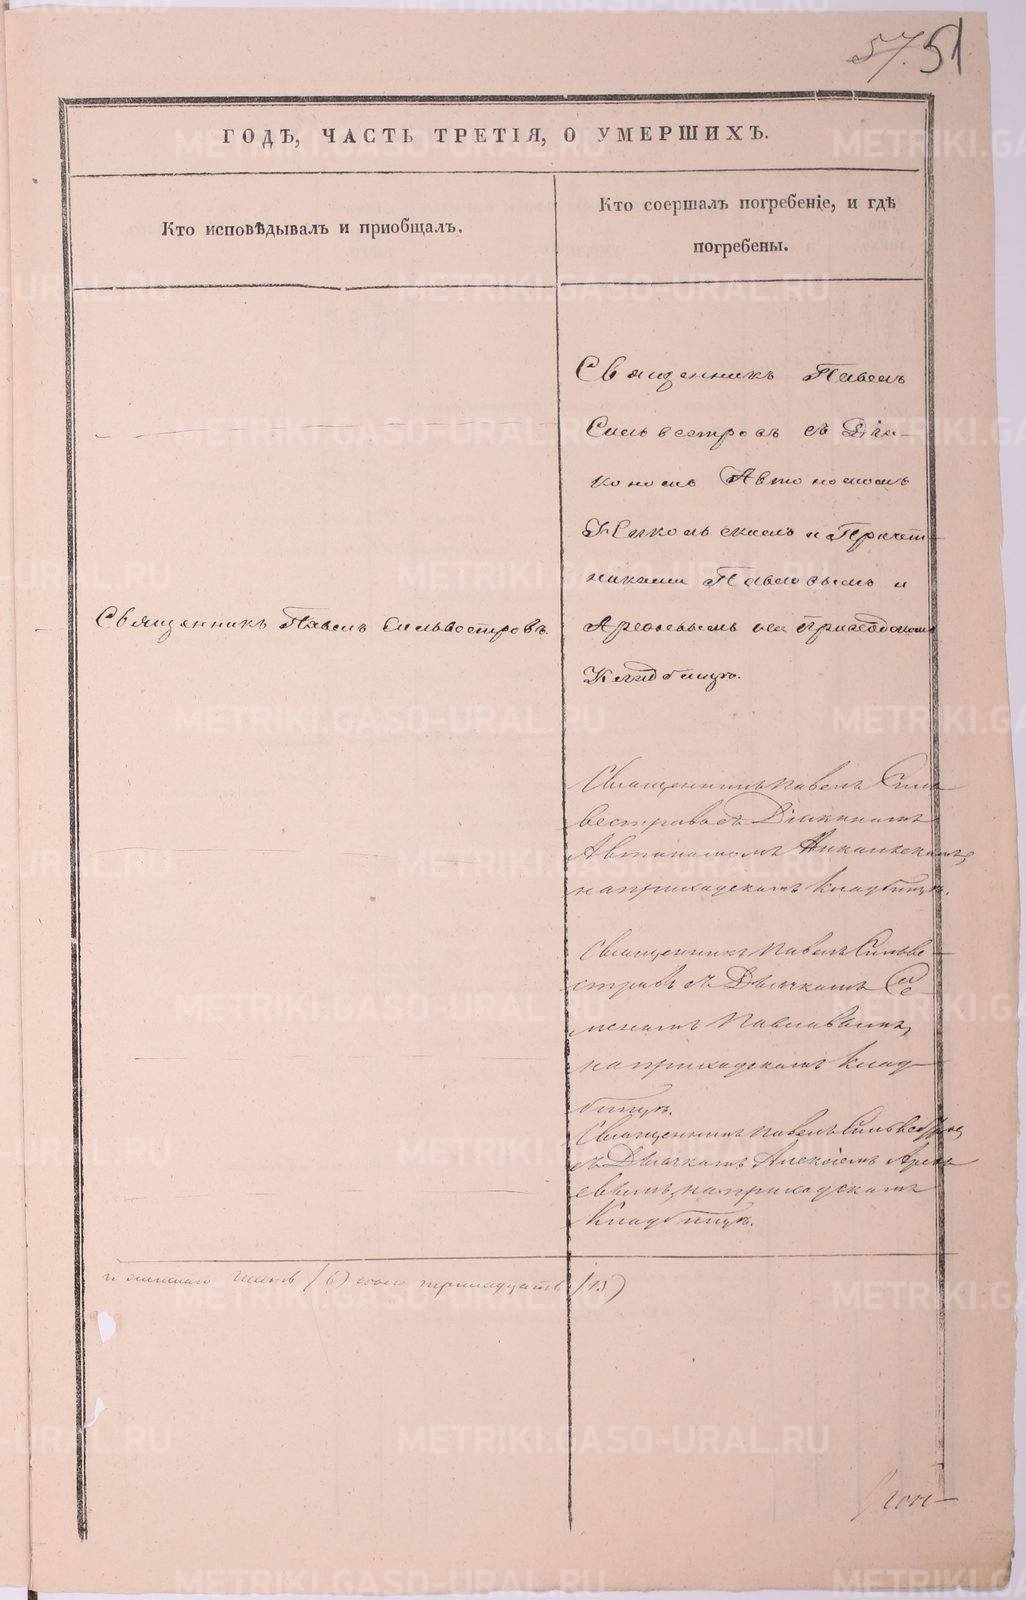 57. 51
ГОДѢ, ЧАСТЬ ТРЕТІЯ, О УМЕРШИХЪ.
Кто исповѣдывалъ и приобщалъ.
Кто соершалъ погребеніе, и гдѣ
погребены.
Священникъ Павелъ
Сильвестровъ съ Діа-
кономъ Автономомъ
Никольскимъ и Причет-
никами Павловымъ и
Арефьевымъ на приходскомъ
Кладбищѣ.
Священникъ Павелъ Сильвестровъ.
Священникъ Павелъ Силь
вестровъ съ Діакономъ
Автономомъ Никольскимъ,
на приходскомъ кладбищѣ.
Священникъ Павелъ Сильве-
стровъ съ Дьячкомъ Се
меномъ Павловымъ,
на приходскомъ клад-
бищѣ.
Священникъ Павелъ Сильвестров,
съ Дьячкомъ Алексіемъ Арефь
евымъ, на приходскомъ
Кладбищѣ.
и женска (6) обоего тринадцать (13)
METRIKI.GASO-URAL.RU